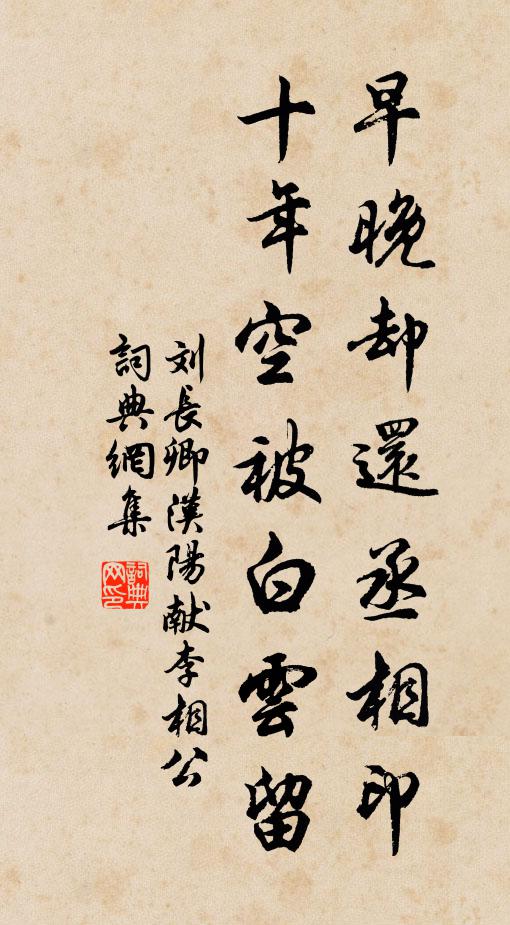 早晚却還丞相印
十年空被白雲留
刘長卿漢陽献李相公
詞典網集
詞典网印